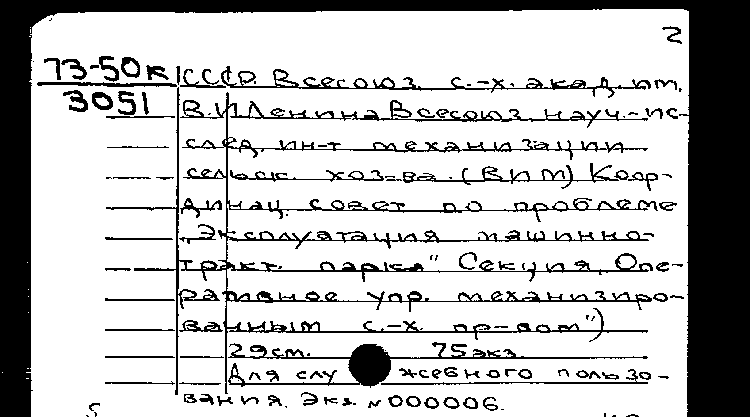 2
73-50к СССР. Всесоюз. с.-х. акад. им.
3051 В.И Ленина Всесоюз. науч.-ис-
след. ин-т механизации
сельск. хоз-ва. (ВИМ) Коор-
динац. совет по проблеме
„Эксплуатация машинно-
тракт. парка" Секция „Опе-
ративное упр. механизиро-
ванным с.-х. пр-вом")
29см. 75экз.
Для служебного пользо-
вания. Экз. №000006.